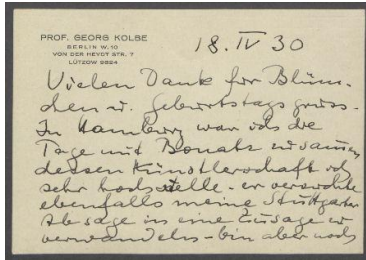 PROF. GEORG KOLBE
BERLIN W. 10
VON DER HEYDT STR. 7
LÜTZOW 9824
18. IV 30
Vielen Dank for Blüm-
chen u. Geburtstagsgruss-
In Hamburg war ich die
Tage mit Bonatz zusammen
dessen Künstlerschaft ich
sehr hoch stelle - er versuchte
ebenfalls meine Stuttgarter
Absage in eine Zusage zu
verwandeln - bin aber noch